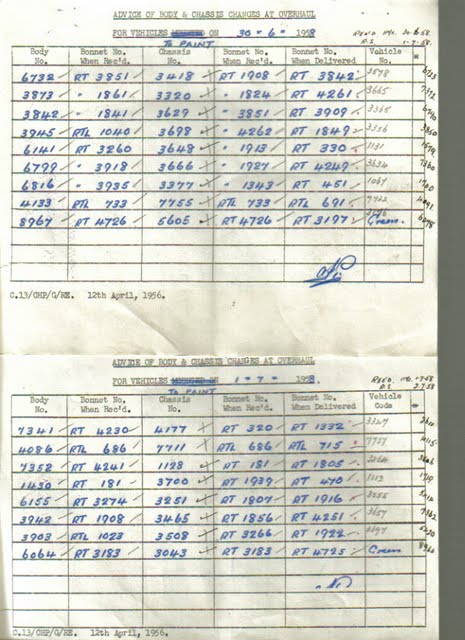 ADVICE OF BODY & CHASSIS CHANGES AT OVERHAUL
FOR VEHICLES ON 30-6- 1958
TO PAINT
Body No. Bonnet No. When Rec'd. Chassis No. Bonnet No. When Rec'd. Bonnet No. When Delivered Vehicle No.
6732 RT 3851 3418 RT 1908 RT 3842 3578
3873 " 1861 3320 " 1824 RT 4261 3665
3842 " 1841 3629 " 3851 RT 3909 3365
3945 RTL 1040 3698 " 4262 RT 1849 3356
6141 RT 3260 3648 " 1913 RT 330 1131
6799 " 3918 3666 " 1927 RT 4249 3634
6816 " 3935 3377 " 1343 RT 451 1067
4133 RTL 733 7755 RTL 733 RTL 691 7722
8967 RT 4726 5605 RT 4726 RT 3197 Green.
C.13/CHP/G/RE. 12th April, 1956.
ADVICE OF BODY & CHASSIS CHANGES AT OVERHAUL
FOR VEHICLES ON 1-7- 1958.
TO PAINT
Body No. Bonnet No. When Rec'd. Chassis No. Bonnet No. When Rec'd. Bonnet No. When Delivered Vehicle Code
7341 RT 4230 4177 RT 320 RT 1332 3327
4086 RTL 686 7711 RTL 686 RTL 715 7757
7352 RT 4241 1128 RT 181 RT 1805 3264
1430 RT 181 3700 RT 1939 RT 470 1113
6155 RT 3274 3251 RT 1807 RT 1916 3255
3942 RT 1908 3465 RT 1856 RT 4251 3657
3903 RTL 1023 3508 RT 3266 RT 1922
6064 RT 3183 3043 RT 3183 RT 4725 Green
C.13/CHP/G/RE. 12th April, 1956.